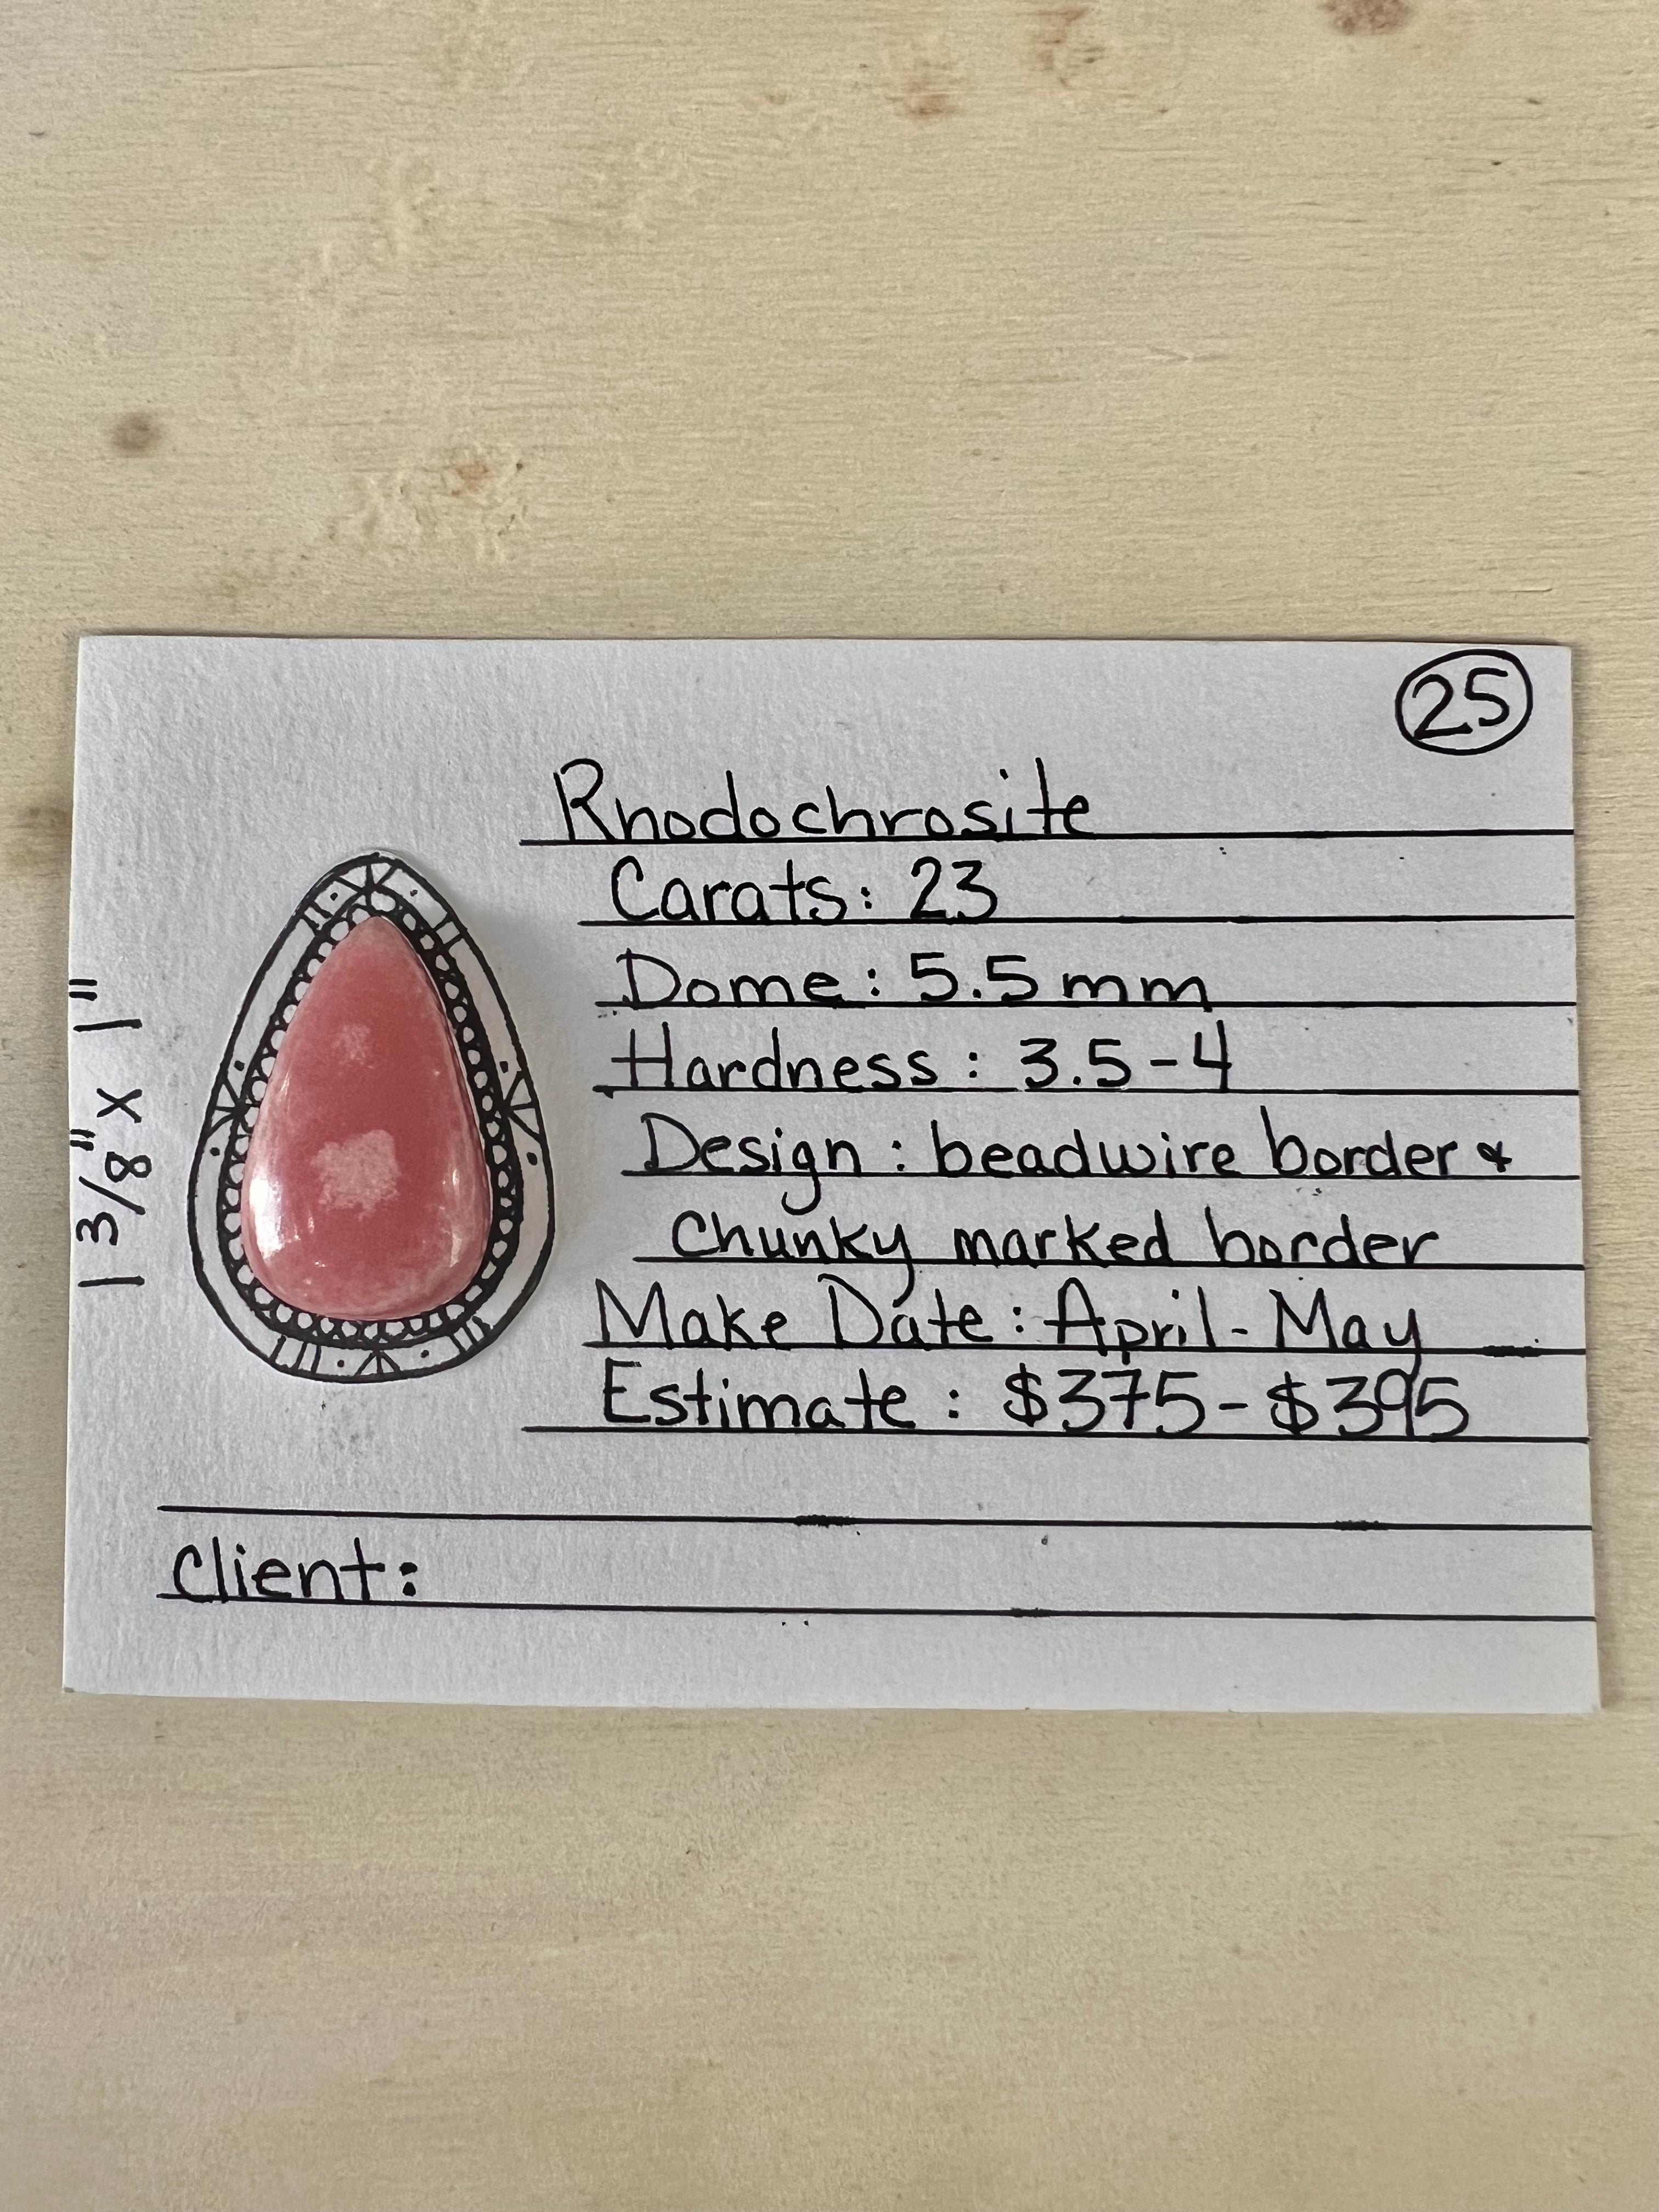 25
Rhodochrosite
Carats: 23
Dome: 5.5 mm
Hardness: 3.5-4
Design: beadwire border &
chunky marked border
Make Date: April-May
Estimate: $375-$395
Client:
1 3/8" x 1"